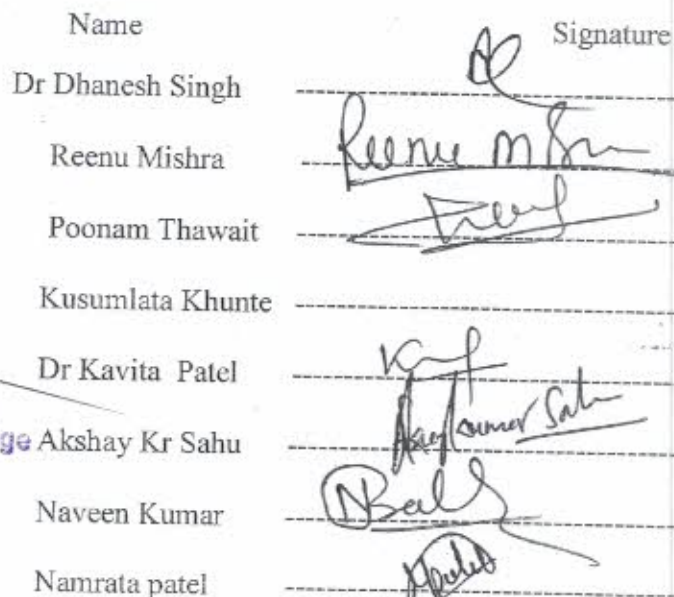 Name Signature
Dr Dhanesh Singh
Reenu Mishra
Reenu M
Poonam Thawait
Kusumlata Khunte
Dr Kavita Patel
ge Akshay Kr Sahu
Kumar Sahu
Naveen Kumar
Namrata patel